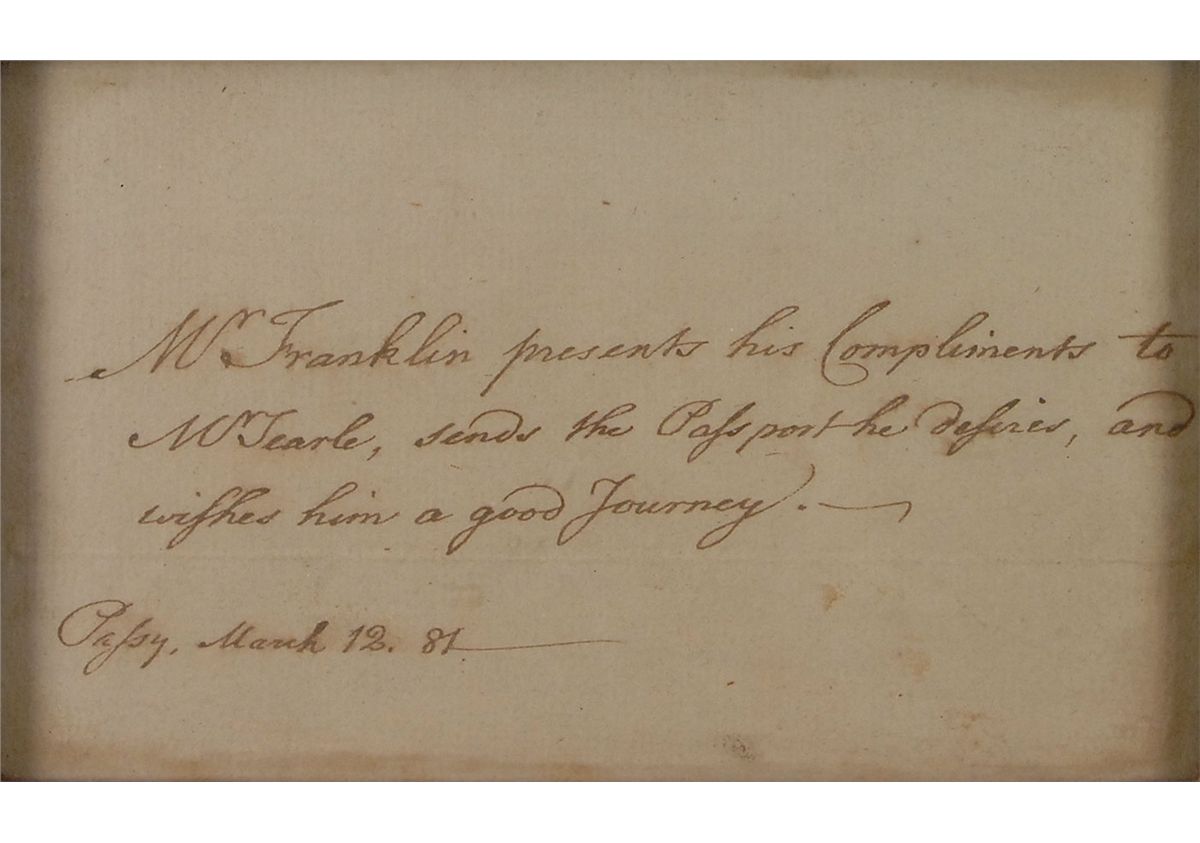 Mr Franklin presents his Compliments to
Mr Searle, sends the Paſsport he desires, and
wiſhes him a good Journey. —
Paſsy, March 12. 81